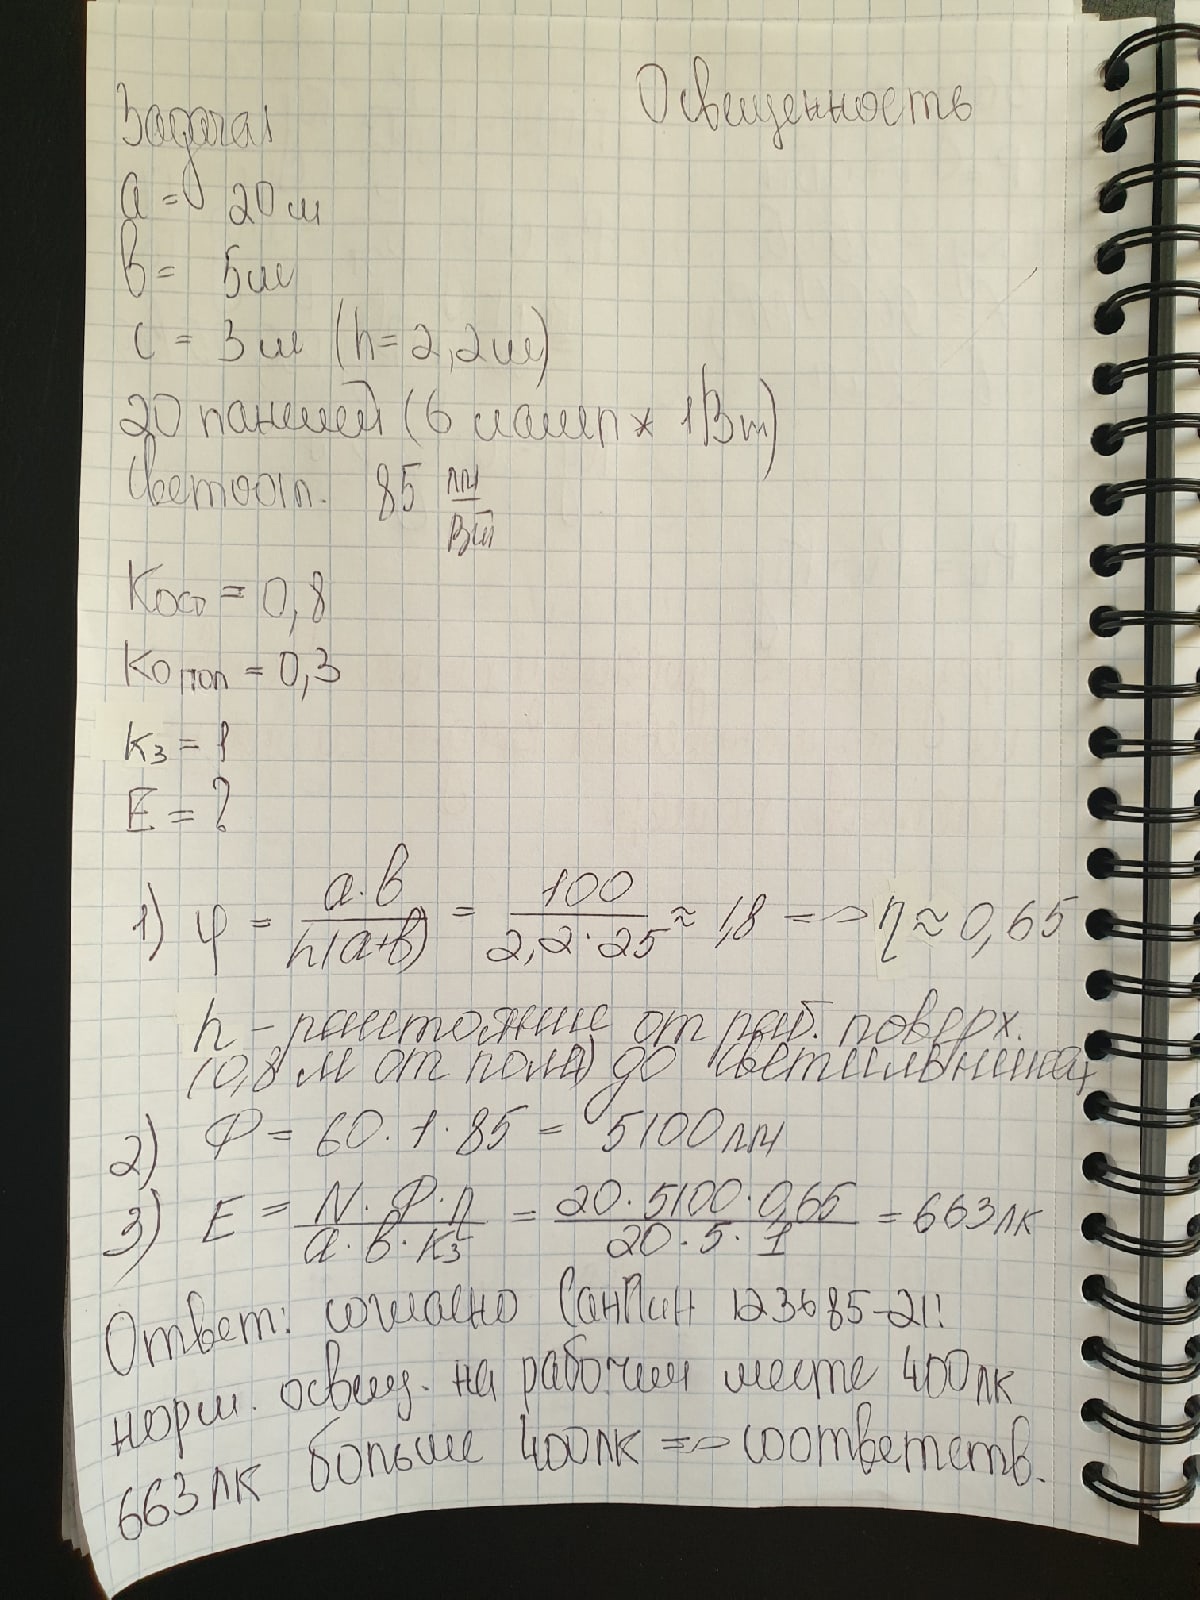 Освещенность
Задача1
a = 20 м
в = 5 м
c = 3 м (h = 2,2 м)
20 панелей (6 ламп * 1Вт)
Светоотп. 85 лм/Вт
Kост = 0,8
Kопол = 0,3
kз = 1
E = ?
1) φ = a·в / h(a+в) = 100 / 2,2·25 ≈ 1,8 => η ≈ 0,65
h - расстояние от раб. поверх.
(0,8 м от пола) до светильника
2) Ф = 60·1·85 = 5100 лм
3) E = N·Ф·η / a·в·kз = 20·5100·0,65 / 20·5·1 = 663 лк
Ответ: согласно СанПин 123685-21!
норм. освещ. на рабочем месте 400 лк
663 лк больше 400 лк => соответств.